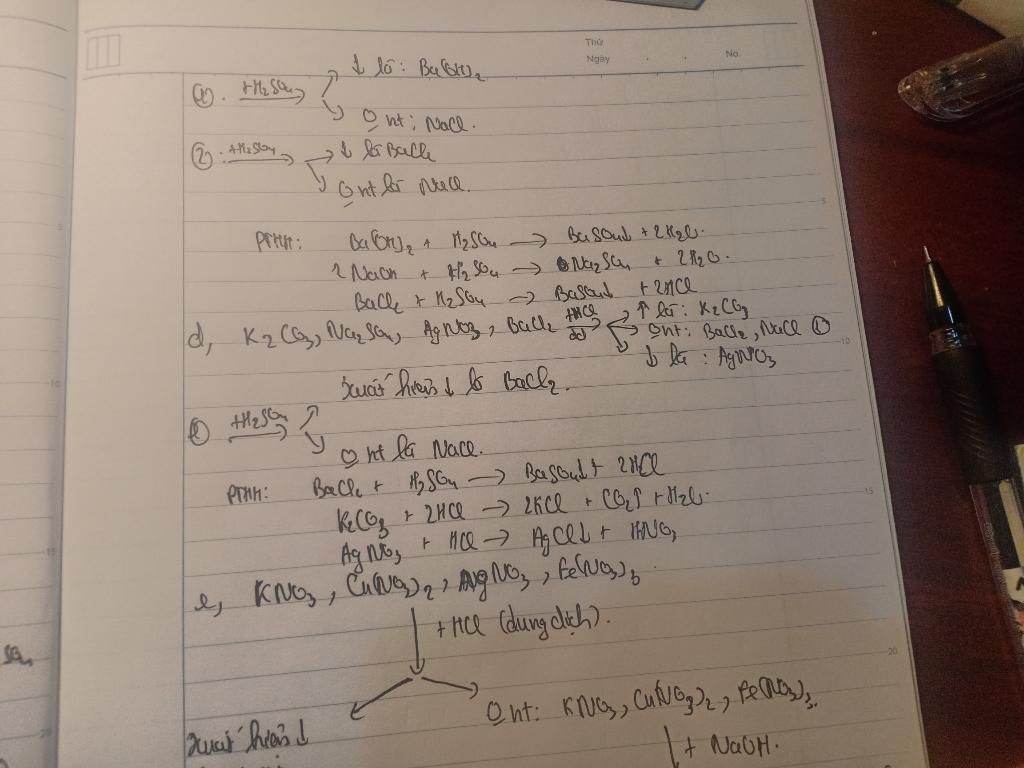 Thứ
Ngày
No.
① +H₂SO₄ → ↓ là: Ba(OH)₂
0 ht: NaCl.
② +H₂SO₄ → ↓ là BaCl₂
0 ht là NaCl.
PTHH: Ba(OH)₂ + H₂SO₄ → BaSO₄↓ + 2H₂O.
2NaOH + H₂SO₄ → Na₂SO₄ + 2H₂O.
BaCl₂ + H₂SO₄ → BaSO₄↓ + 2HCl
d, K₂CO₃, Na₂SO₄, AgNO₃, BaCl₂ +HCl dd → ↑ là: K₂CO₃
0 ht: BaCl₂, NaCl ①
↓ là: AgNO₃
xuất hiện ↓ là BaCl₂.
① +H₂SO₄ →
0 ht là NaCl.
PTHH: BaCl₂ + H₂SO₄ → BaSO₄↓ + 2HCl
K₂CO₃ + 2HCl → 2KCl + CO₂↑ + H₂O.
AgNO₃ + HCl → AgCl↓ + HNO₃
e, KNO₃, Cu(NO₃)₂, AgNO₃, Fe(NO₃)₃.
+ HCl (dung dịch).
0 ht: KNO₃, Cu(NO₃)₂, Fe(NO₃)₃.
xuất hiện ↓
+ NaOH.
5
10
15
20